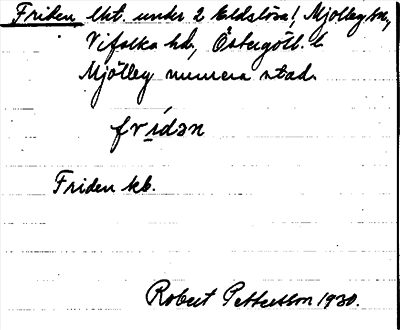 Friden lht. under 2 Eldslösa! Mjölby sn,
Vifolka hd, Östergötl. l
Mjölby numera stad.
frídən
Friden kb.
Robert Pettersson 1930.